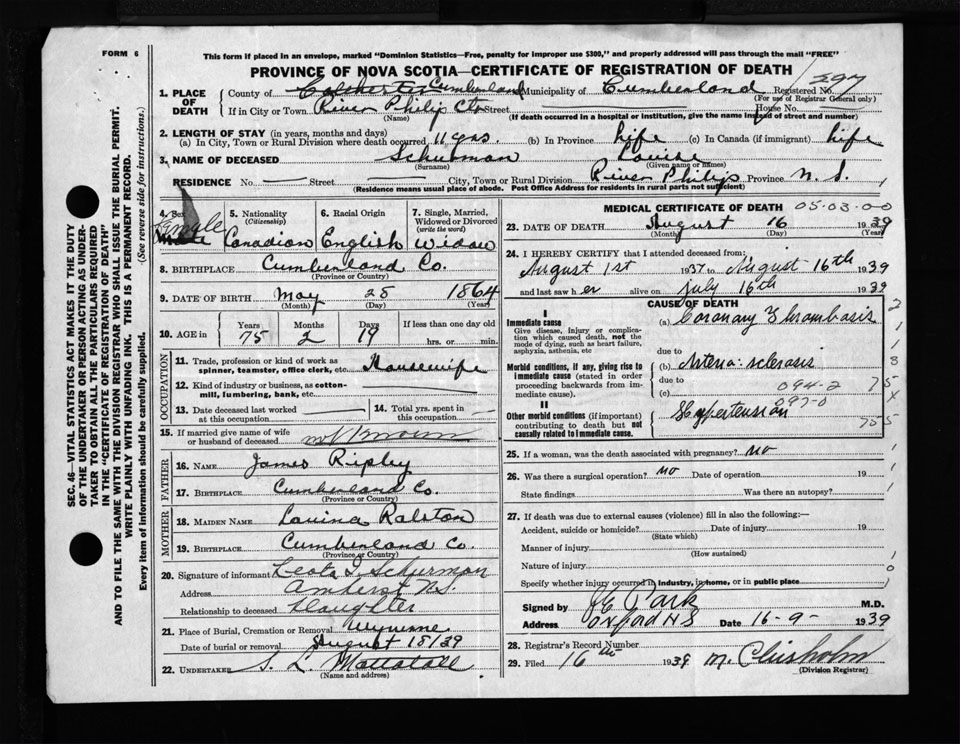 FORM 6
This form if placed in an envelope, marked "Dominion Statistics—Free, penalty for improper use $300," and properly addressed will pass through the mail "FREE"
PROVINCE OF NOVA SCOTIA—CERTIFICATE OF REGISTRATION OF DEATH
1. PLACE OF DEATH
County of Cumberland Municipality of Cumberland Registered No. 297
(For use of Registrar General only)
If in City or Town River Philip Ctr Street House No.
(Name) (If death occurred in a hospital or institution, give the name instead of street and number)
2. LENGTH OF STAY (in years, months and days)
(a) In City, Town or Rural Division where death occurred 11 yrs. (b) In Province life (c) In Canada (if immigrant) life
3. NAME OF DECEASED Schurman Louise
(Surname) (Given name or names)
RESIDENCE No. — Street — City, Town or Rural Division River Philip Province N. S.
(Residence means usual place of abode. Post Office Address for residents in rural parts not sufficient)
4. Sex Female
5. Nationality (Citizenship) Canadian
6. Racial Origin English
7. Single, Married, Widowed or Divorced (write the word) Widow
8. BIRTHPLACE Cumberland Co.
(Province or Country)
9. DATE OF BIRTH May 28 1864
(Month) (Day) (Year)
10. AGE in Years 75 Months 2 Days 19 If less than one day old hrs. or min.
OCCUPATION
11. Trade, profession or kind of work as spinner, teamster, office clerk, etc. Housewife
12. Kind of industry or business, as cotton-mill, lumbering, bank, etc.
13. Date deceased last worked at this occupation
14. Total yrs. spent in this occupation
15. If married give name of wife or husband of deceased not known
FATHER
16. NAME James Ripley
17. BIRTHPLACE Cumberland Co.
(Province or Country)
MOTHER
18. MAIDEN NAME Lavina Ralston
19. BIRTHPLACE Cumberland Co.
(Province or Country)
20. Signature of informant Leota I. Schurman
Address Amherst N.S.
Relationship to deceased Daughter
21. Place of Burial, Cremation or Removal
Date of burial or removal August 18/39
22. UNDERTAKER S. L. Mattatall
(Name and address)
MEDICAL CERTIFICATE OF DEATH 05-03-00
23. DATE OF DEATH August 16 1939
(Month) (Day) (Year)
24. I HEREBY CERTIFY that I attended deceased from:
August 1st 1937 to August 16th 1939
and last saw her alive on July 16th 1939
CAUSE OF DEATH
I
Immediate cause (a) Coronary Thrombosis
Give disease, injury or complication which caused death, not the mode of dying, such as heart failure, asphyxia, asthenia, etc
due to
Morbid conditions, if any, giving rise to immediate cause (stated in order proceeding backwards from immediate cause). (b) Arterio-sclerosis
due to 094-2
(c) 097-0
II
Other morbid conditions (if important) contributing to death but not causally related to immediate cause. Hypertension
25. If a woman, was the death associated with pregnancy? no
26. Was there a surgical operation? no Date of operation 19
State findings Was there an autopsy?
27. If death was due to external causes (violence) fill in also the following:—
Accident, suicide or homicide? Date of injury 19
(State which)
Manner of injury
(How sustained)
Nature of injury
Specify whether injury occurred in industry, in home, or in public place
Signed by Park M.D.
Address Oxford NS Date 16-9- 1939
28. Registrar's Record Number
29. Filed 16th 1939 M. Chisholm
(Division Registrar)
SEC. 46—VITAL STATISTICS ACT MAKES IT THE DUTY
OF THE UNDERTAKER OR PERSON ACTING AS UNDER-
TAKER TO OBTAIN ALL THE PARTICULARS REQUIRED
IN THE "CERTIFICATE OF REGISTRATION OF DEATH"
AND TO FILE THE SAME WITH THE DIVISION REGISTRAR WHO SHALL ISSUE THE BURIAL PERMIT.
WRITE PLAINLY WITH UNFADING INK. THIS IS A PERMANENT RECORD.
Every item of information should be carefully supplied. (See reverse side for instructions.)